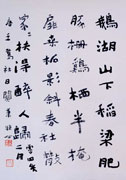 鵝湖山下稻粱肥
豚栅鷄栖半掩
扉桑柘影斜春社散
家々扶得醉人歸 二月
唐王駕社日